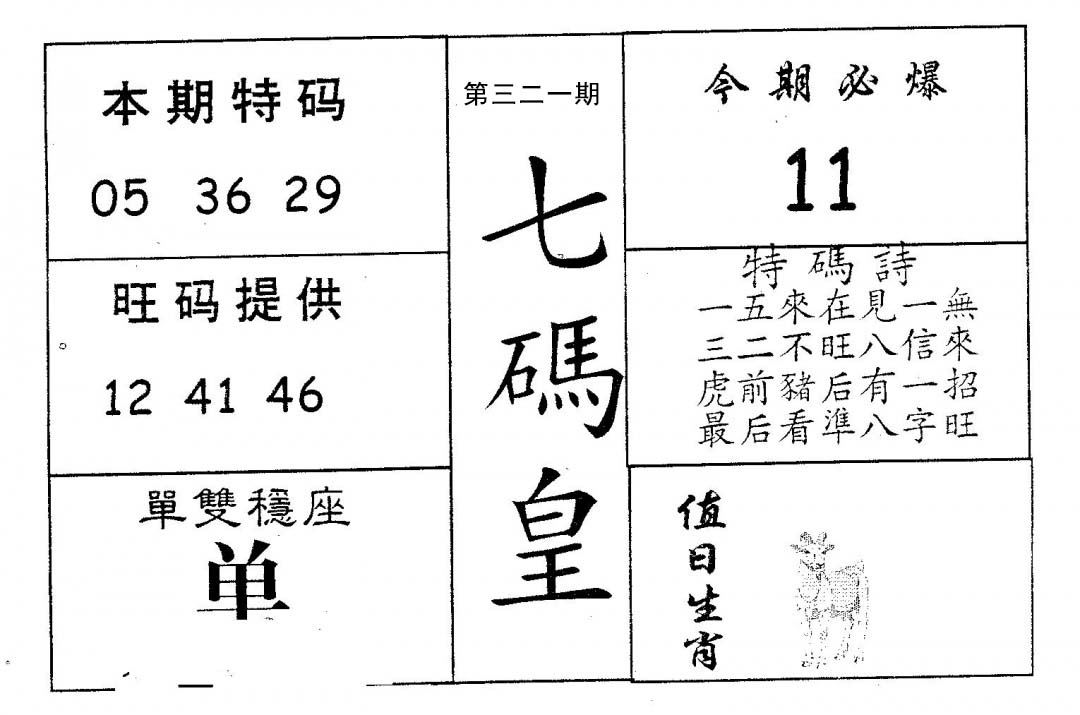 本期特码
05 36 29
旺码提供
12 41 46
單雙穩座
单
第三二一期
七碼皇
今期必爆
11
特碼詩
一五來在見一無
三二不旺八信來
虎前豬后有一招
最后看準八字旺
值日生肖